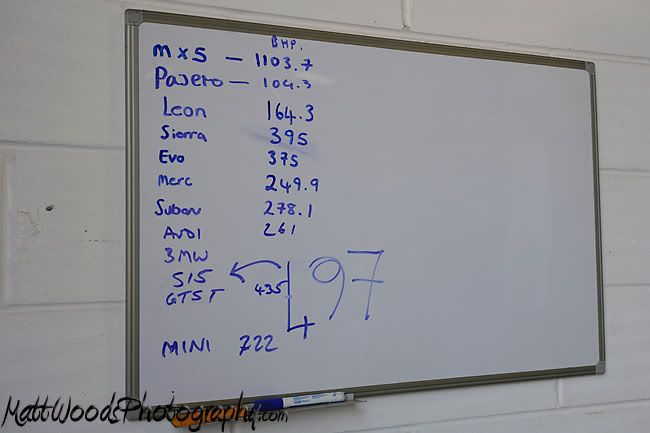 BHP.
MX5 — 1103.7
Pajero — 104.3
Leon 164.3
Sierra 395
Evo 375
Merc 249.9
Subaru 278.1
AUDI 261
BMW
S15 497
GTST 435
MINI 722
MattWoodsPhotography.com